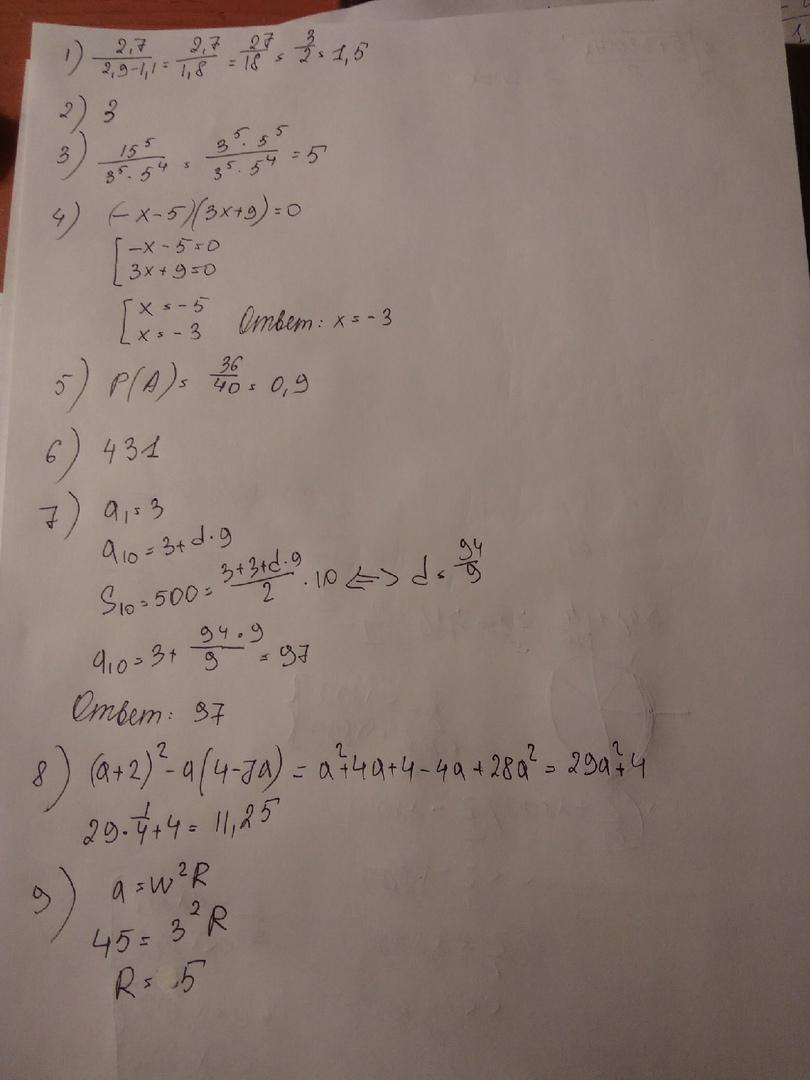 1) 2,7/2,9-1,1 = 2,7/1,8 = 27/18 = 3/2 = 1,5
2) 3
3) 15⁵/3⁵·5⁴ = 3⁵·5⁵/3⁵·5⁴ = 5
4) (-x-5)(3x+9)=0
[-x-5=0
3x+9=0
[x=-5
x=-3 Ответ: x=-3
5) P(A)= 36/40 = 0,9
6) 431
7) a₁=3
a₁₀=3+d·9
S₁₀=500= 3+3+d·9/2 ·10 <=> d= 94/9
a₁₀=3+ 94·9/9 = 97
Ответ: 97
8) (a+2)²-a(4-7a) = a²+4a+4-4a+28a² = 29a²+4
29·1/4+4= 11,25
9) a=w²R
45= 3²R
R= 5